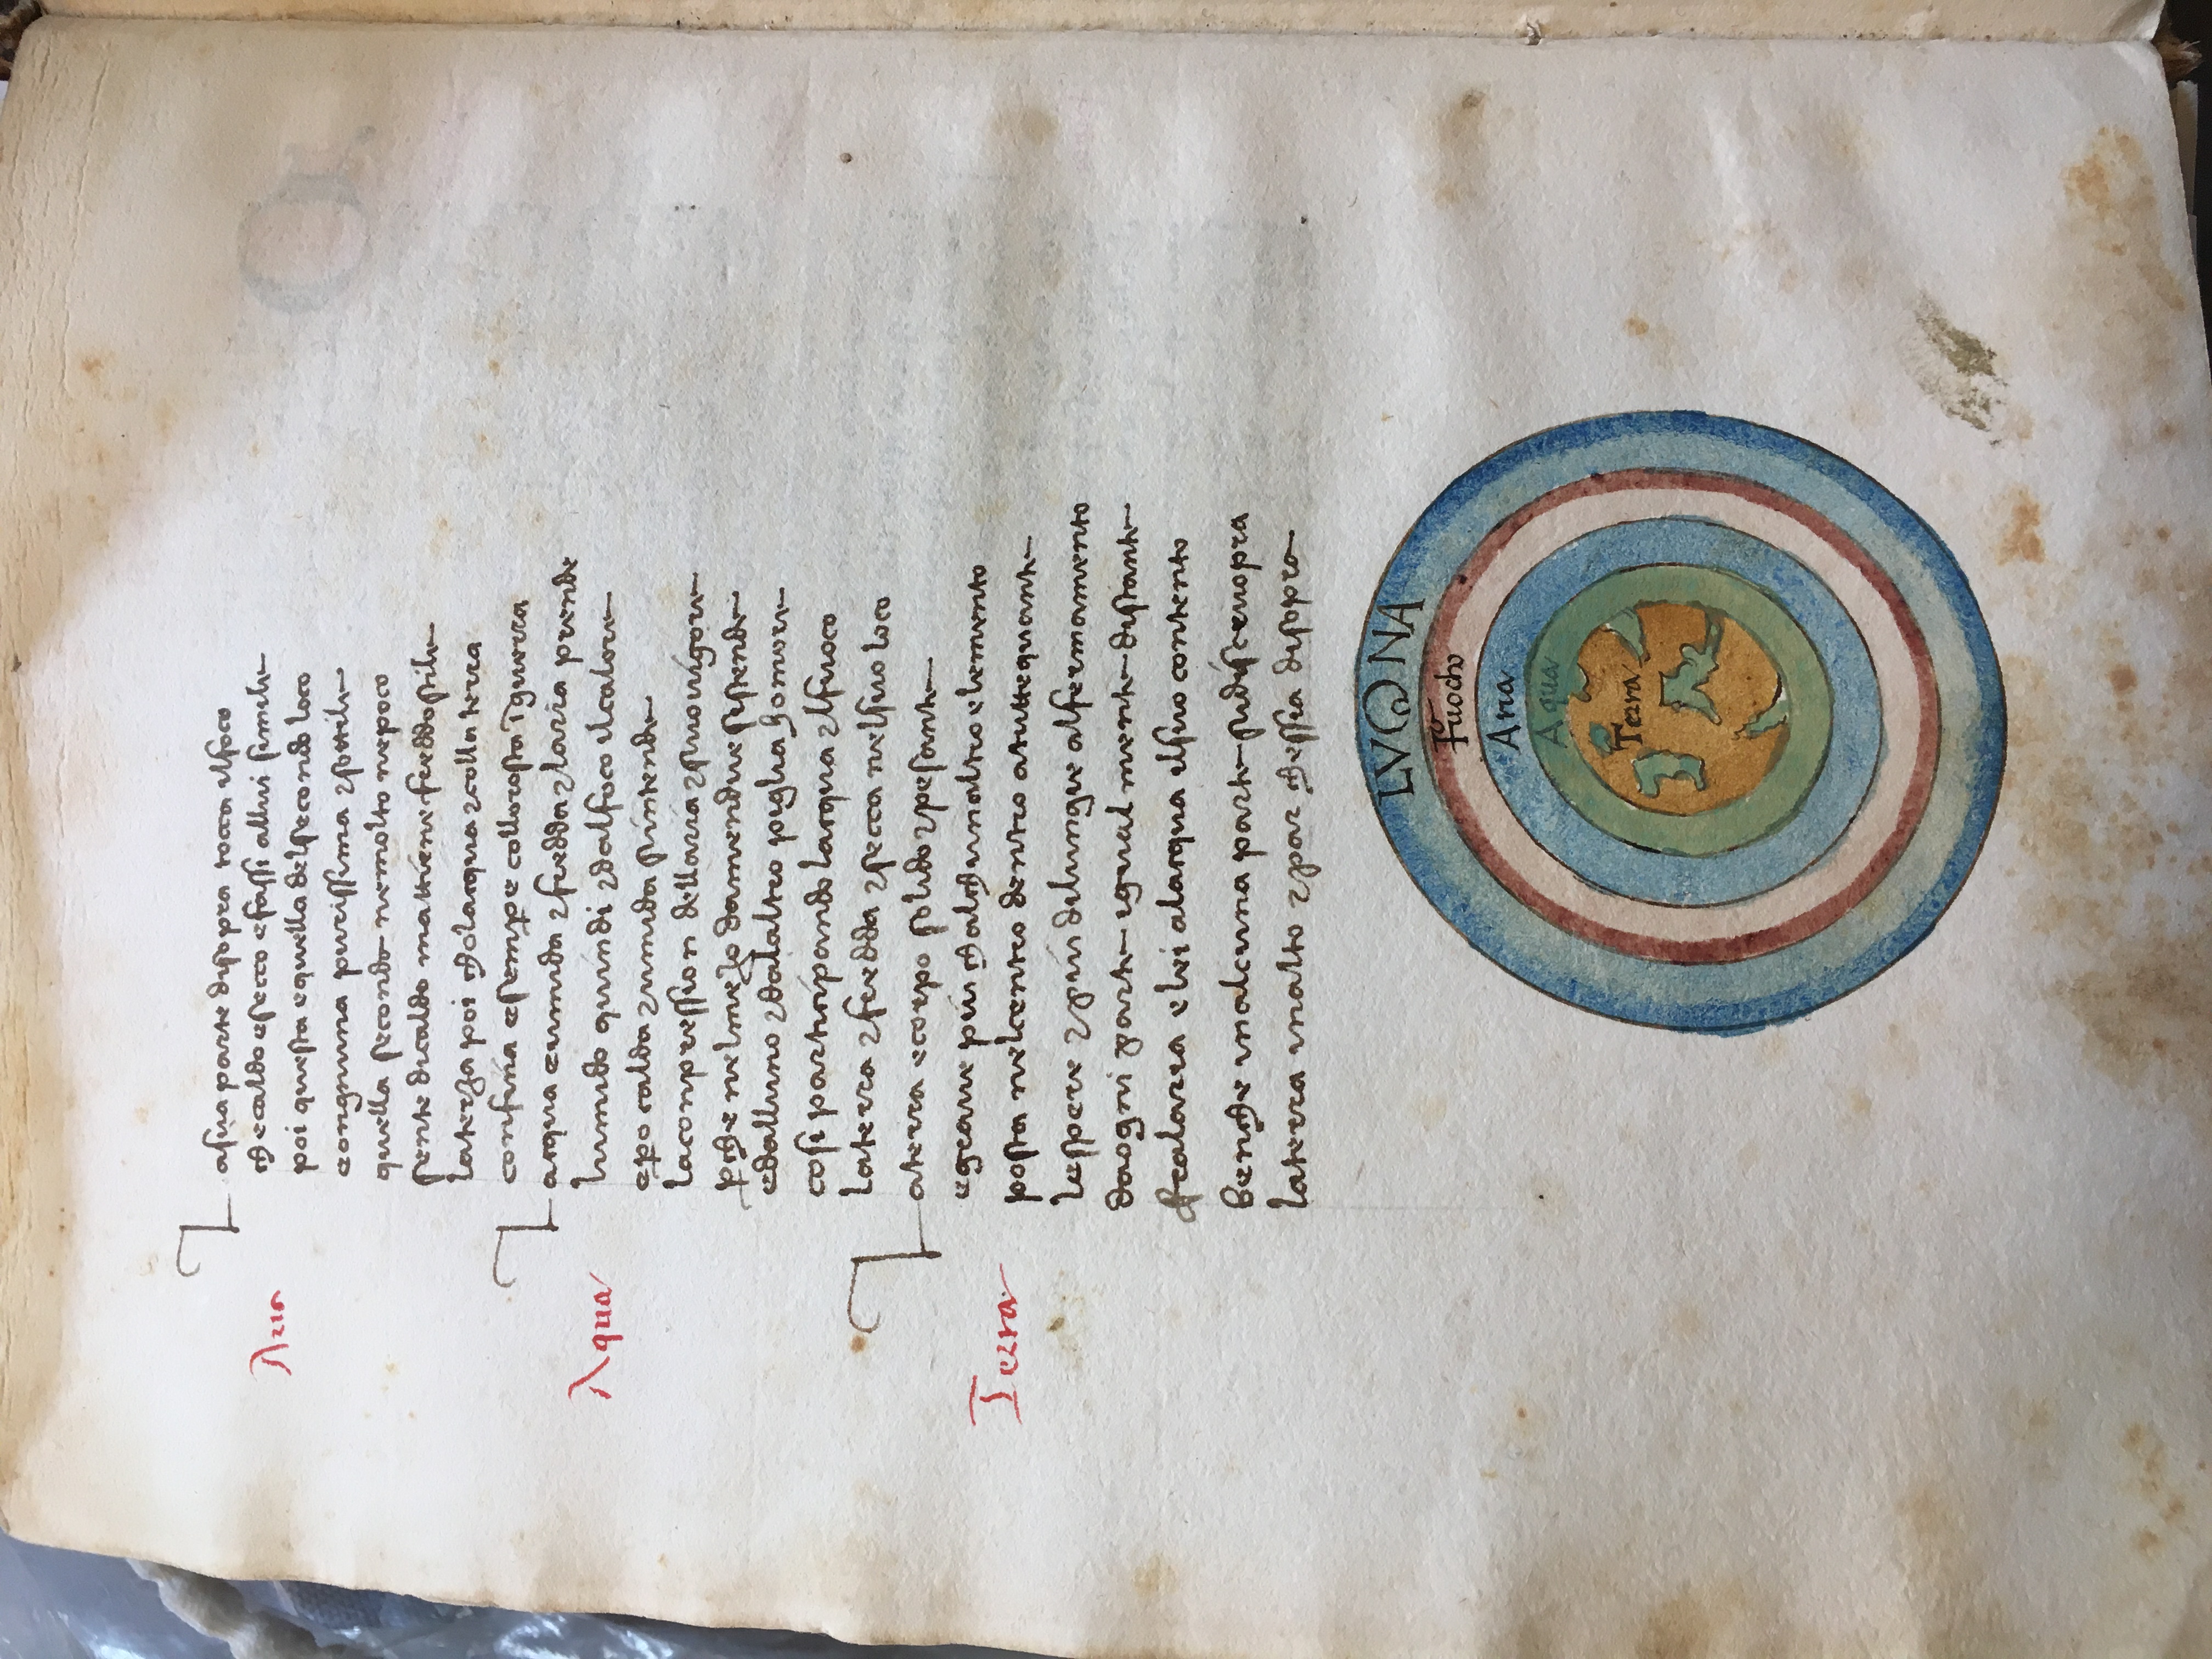 Aria
La sua parte disopra tocca il foco
che caldo esecco efassi allui simile
poi questa equella delsecondo loco
eongnuna purissima esottile
quella secondo nemolto nepoco
sente dicaldo mattiene freddo stile
laterza poi chelacqua ecolla terra
confina esempre collorosta īguerra
Aqua
Lacqua eumida efredda elaria prende
lumido quindi edalfoco ilcalore
epo calda eumida sintende
laconpression dellaria esuo uigore
perche nelmezo damendue sistende
edalluno edalaltro piglia homore
cosi participando lacqua elfuoco
laterra efredda esecca nelsuo loco
Terra
Laterra ecorpo solido epesante
egraue piu chalchunaltro elemento
posta nelcentro dentro atuttequante
lespere epiu dilungie alfermamento
daogni parte igual mente distante
effralaria elei alacqua ilsuo contento
benche inalcuna parte sidiscuopra
laterra inalto epar chessia disopra
LVONA
Fuocho
Aria
Aqua
Terra